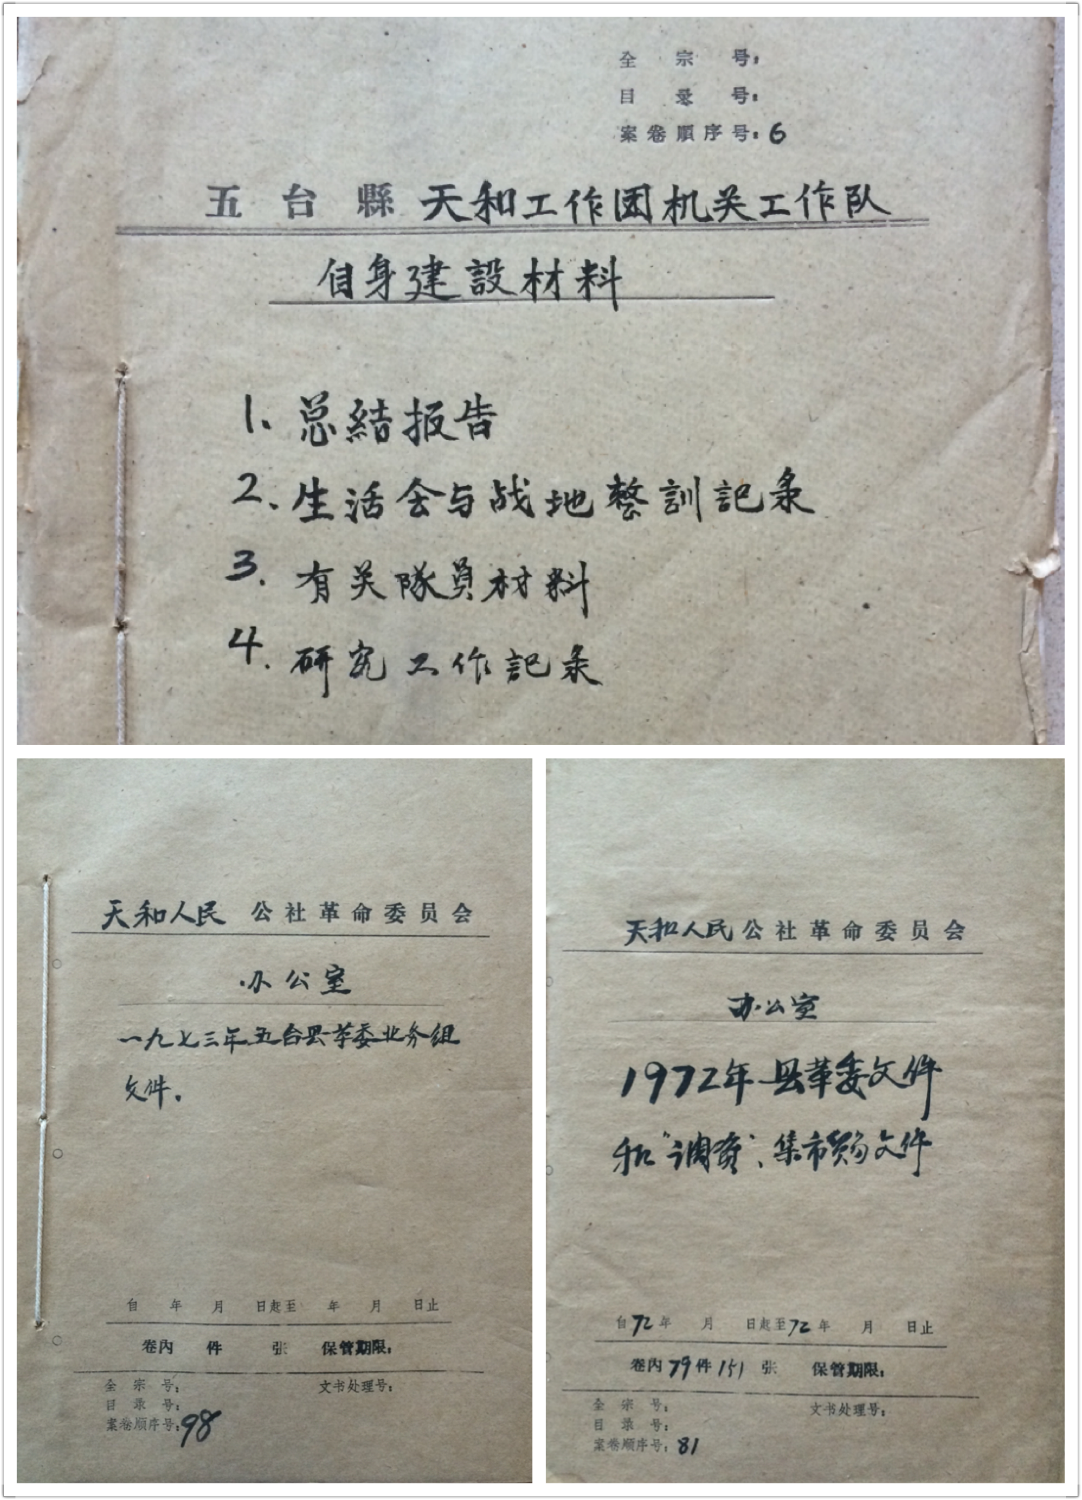 全宗号:
目录号:
案卷順序号:6
五台縣天和工作团机关工作队
自身建設材料
1、总結报告
2、生活会与战地整訓記录
3.有关隊員材料
4.研究工作記录
天和人民公社革命委员会
办公室
一九七三年五台县革委业务组
文件。
自 年 月 日起至 年 月 日止
卷内 件 张 保管期限:
全宗号: 文书处理号:
目录号:
案卷顺序号:98
天和人民公社革命委员会
办公室
1972年县革委文件
和"调资"、集市贸易文件
自72年 月 日起至72年 月 日止
卷内79件151张 保管期限:
全宗号: 文书处理号:
目录号:
案卷顺序号:81